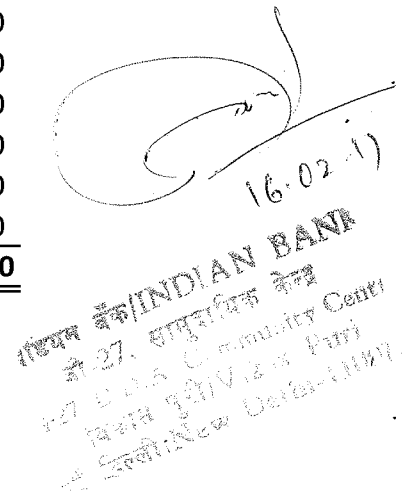 0
0
0
0
0
0
0
16.02.17
इंडियन बैंक/INDIAN BANK
बी-27, सामुदायिक केन्द्र
Community Centr
विकास पुरी/Vikas Puri
दिल्ली/New Delhi-1100